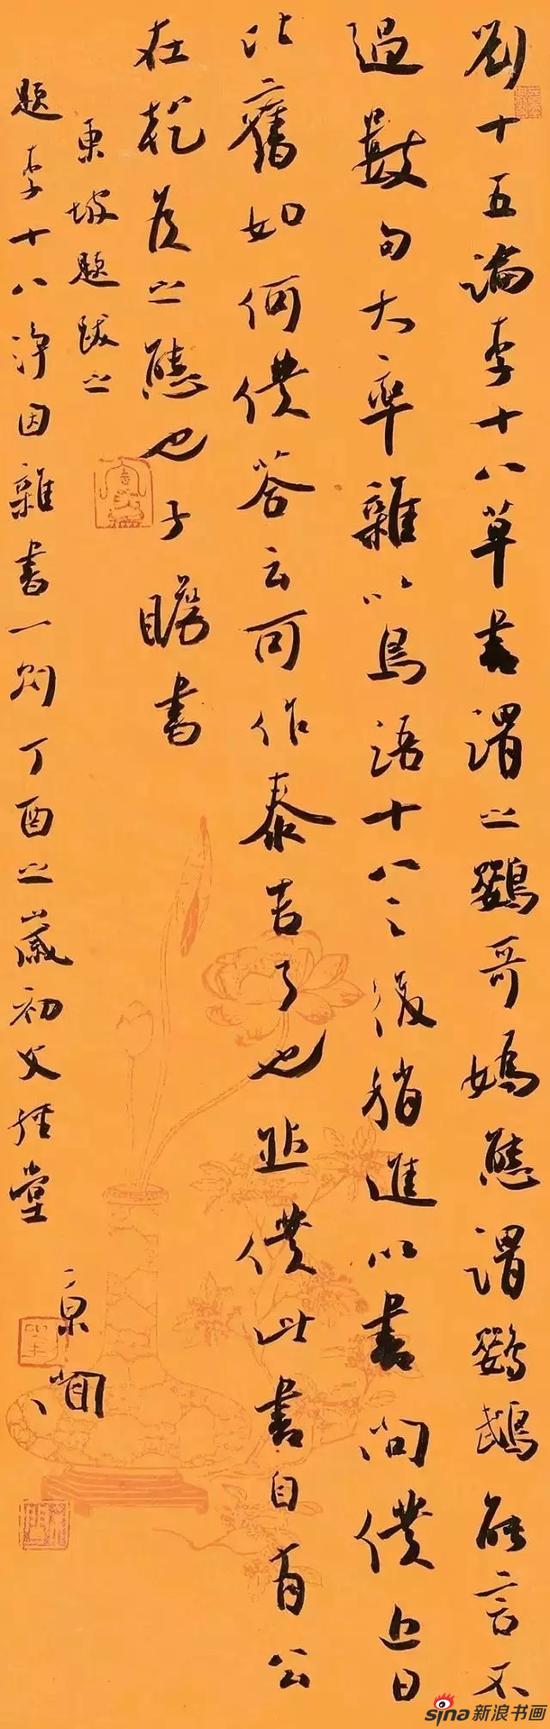 劉十五論李十八草書謂之鸚哥嬌態謂鸚鵡能言不
過數句大率雜以鳥語十八之後稍進以書問僕近日
比舊如何僕答云可作秦吉了也然僕此書自有公
在乾侯之態也子瞻書
東坡題跋之
題李十八淨因雜書一則丁酉之歲初文堂
sina新浪书画